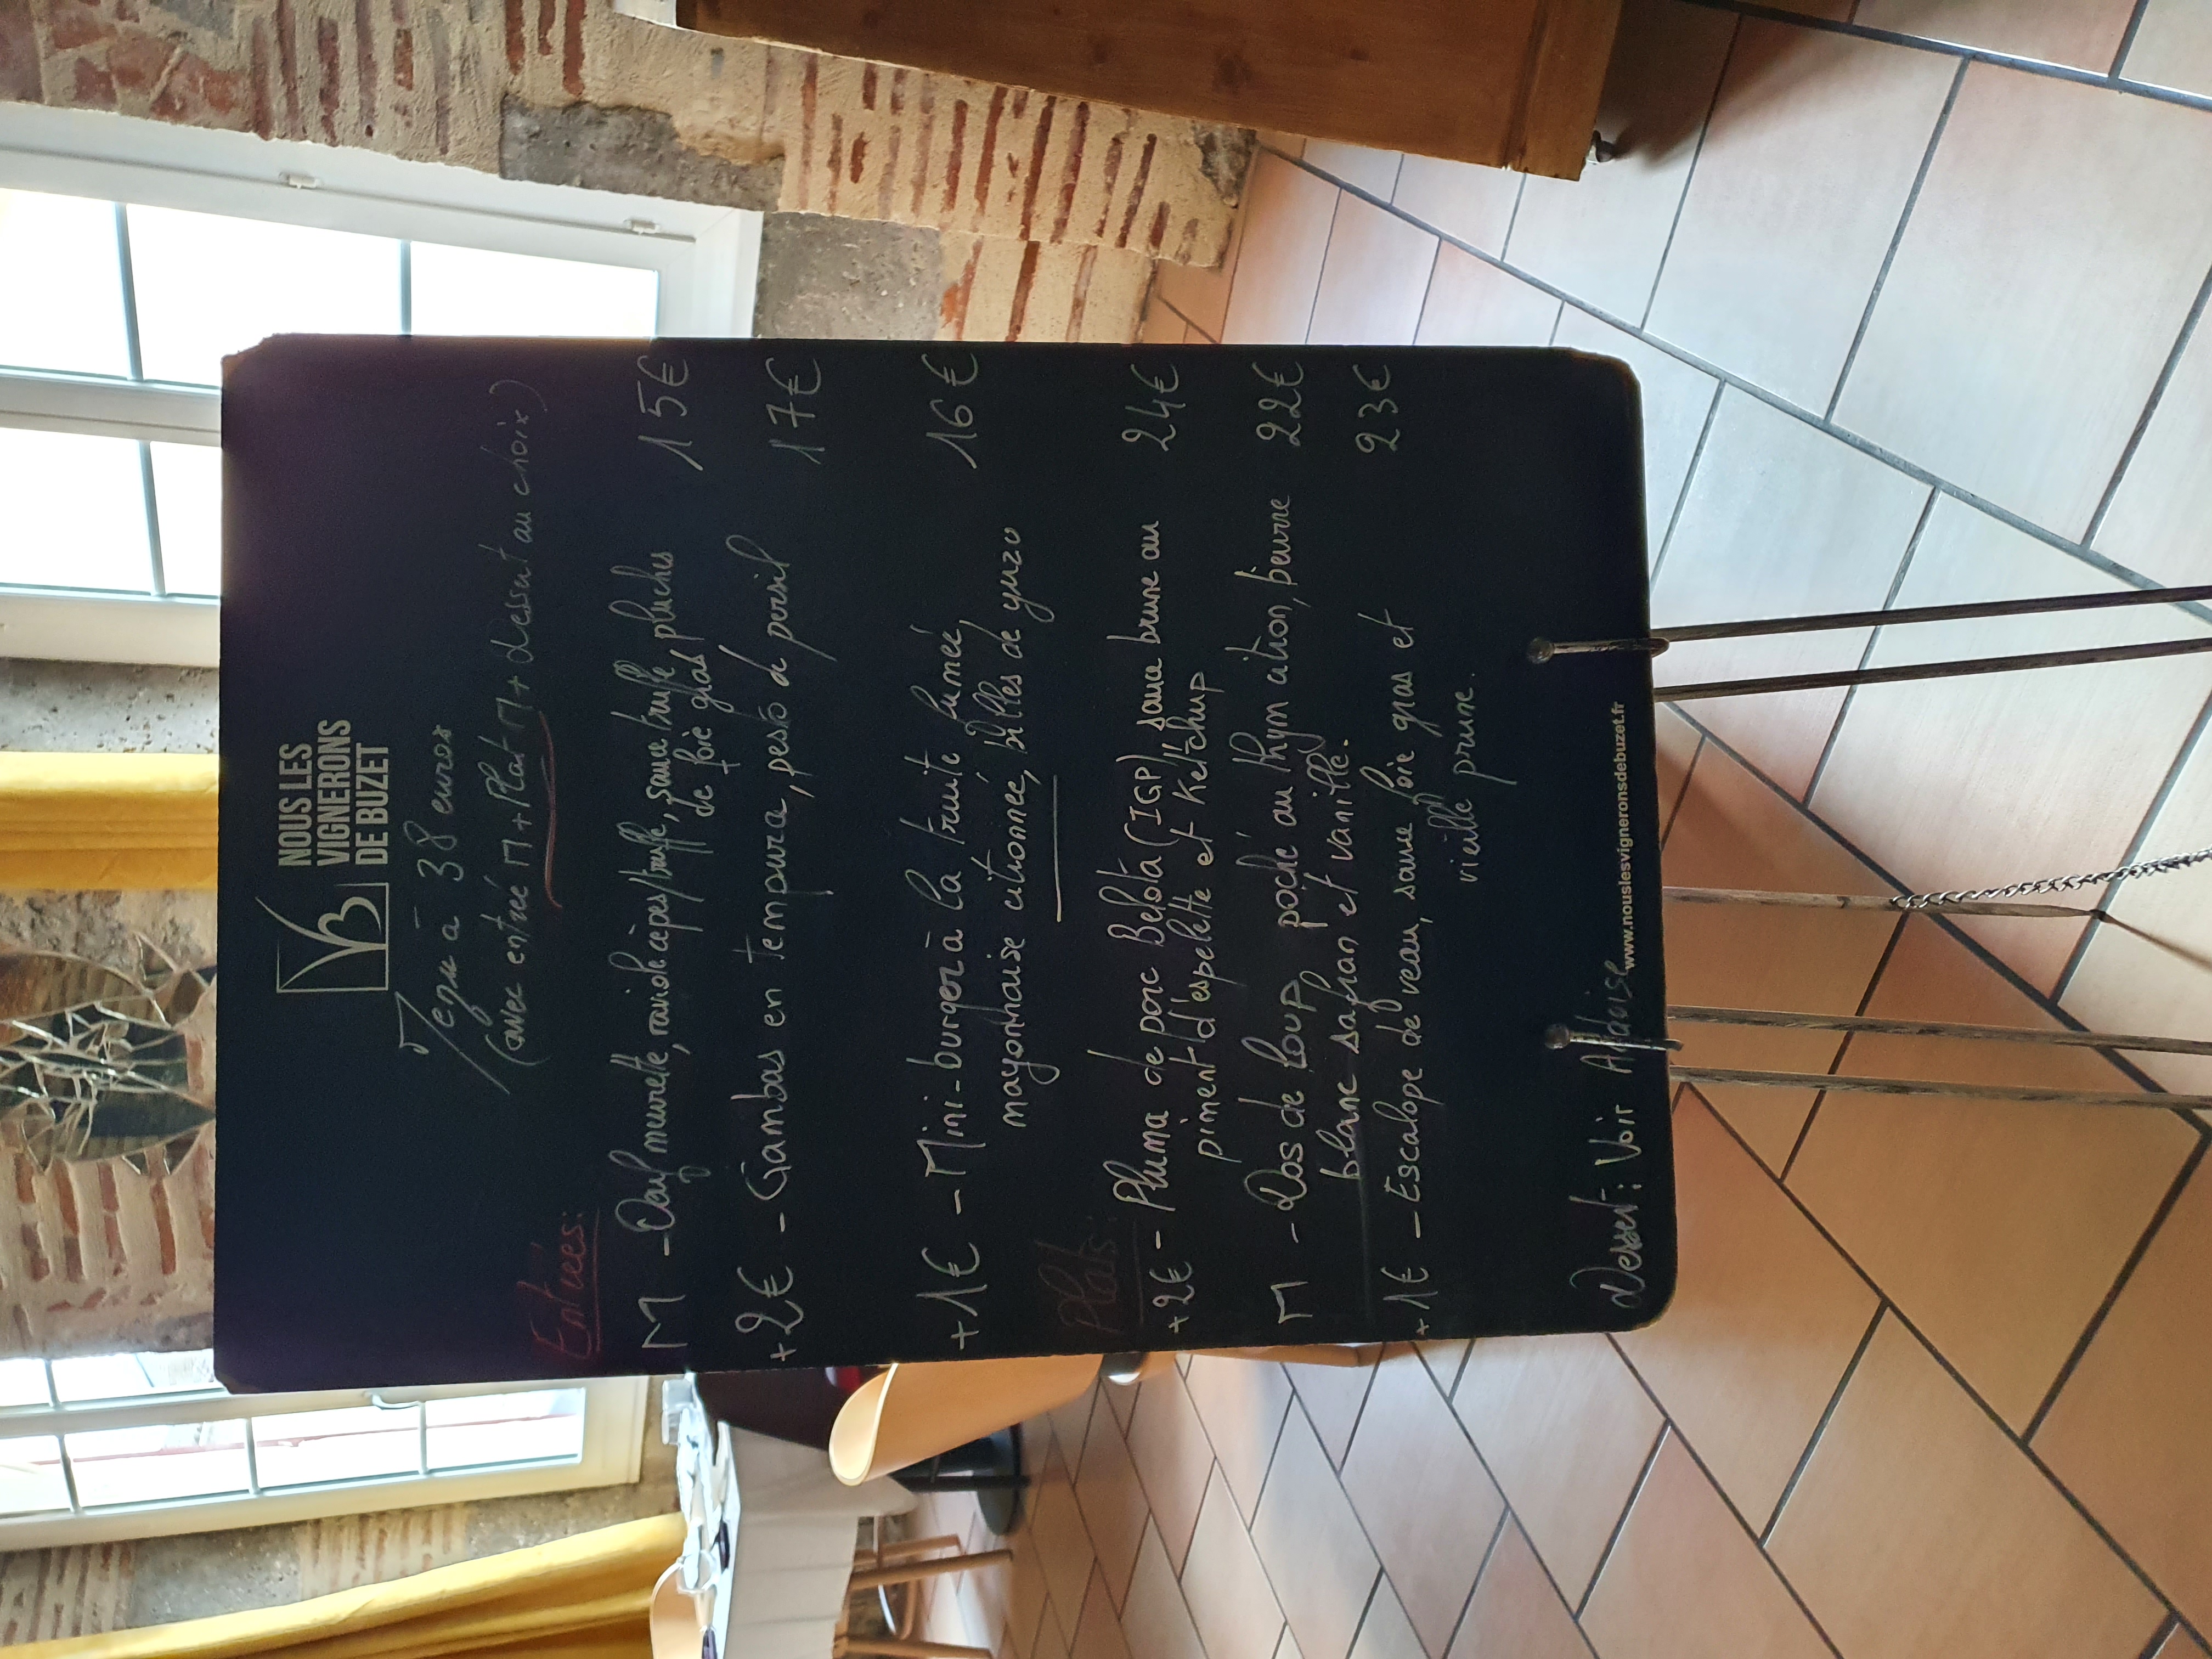 NOUS LES
VIGNERONS
DE BUZET
Menu à 38 euros
(avec entrée M + Plat M + dessert au choix)
Entrées:
M - Oeuf meurette, raviole cèpes/truffe, sauce truffe, pluches 15€
de foie gras
+2€ - Gambas en tempura, pesto de persil 17€
+1€ - Mini-burger à la truite fumée, 16€
mayonnaise citronnée, billes de yuzu
Plats:
+2€ - Pluma de porc Belota (IGP), sauce brune au 24€
piment d'espelette et Ketchup
M - Dos de loup poché au thym citron, beurre 22€
blanc safran et vanille.
+1€ - Escalope de veau, sauce foie gras et 23€
vieille prune.
Dessert: Voir Ardoise
www.nouslesvigneronsdebuzet.fr